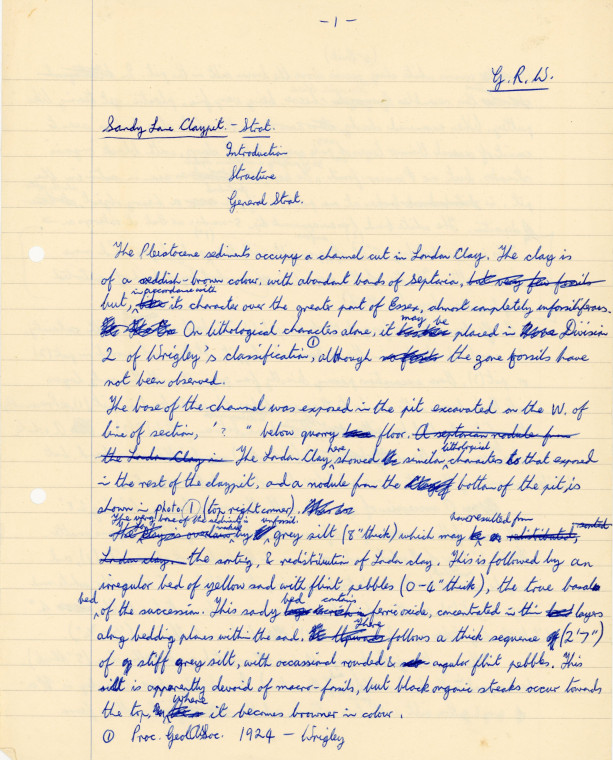 - 1 -
G. R. W.
Sandy Lane Claypit. - Strat.
Introduction
Structure
General Strat.
The Pleistocene sediments occupy a channel cut in London Clay. The clay is
of a reddish-brown colour, with abundant bands of septaria, but very few fossils
but, in accordance with its character over the greater part of Essex, almost completely unfossiliferous.
On lithological characters alone, it may be placed in Division
2 of Wrigley's classification ①, although the zone fossils have
not been observed.
The base of the channel was exposed in the pit excavated on the W. of
line of section, '? " below quarry floor. A septarian nodule from
the London Clay in The London Clay here, showed similar lithological characters to that exposed
in the rest of the claypit, and a nodule from the bottom of the pit is
shown in photo. ① (top right corner).
The very base of the channel is
by unfossil. grey silt (8" thick) which may have resulted from
London clay the sorting, & redistribution of London clay. This is followed by an
irregular bed of yellow sand with flint pebbles (0-4" thick), the true basal
bed of the succession. This sandy bed contains ferric oxide, concentrated in thin layers
along bedding planes within the sand. There follows a thick sequence (2'7")
of stiff grey silt, with occassional rounded & angular flint pebbles. This
silt is apparently devoid of macro-fossils, but black organic streaks occur towards
the top, where it becomes browner in colour.
① Proc. Geol. Assoc. 1924 - Wrigley